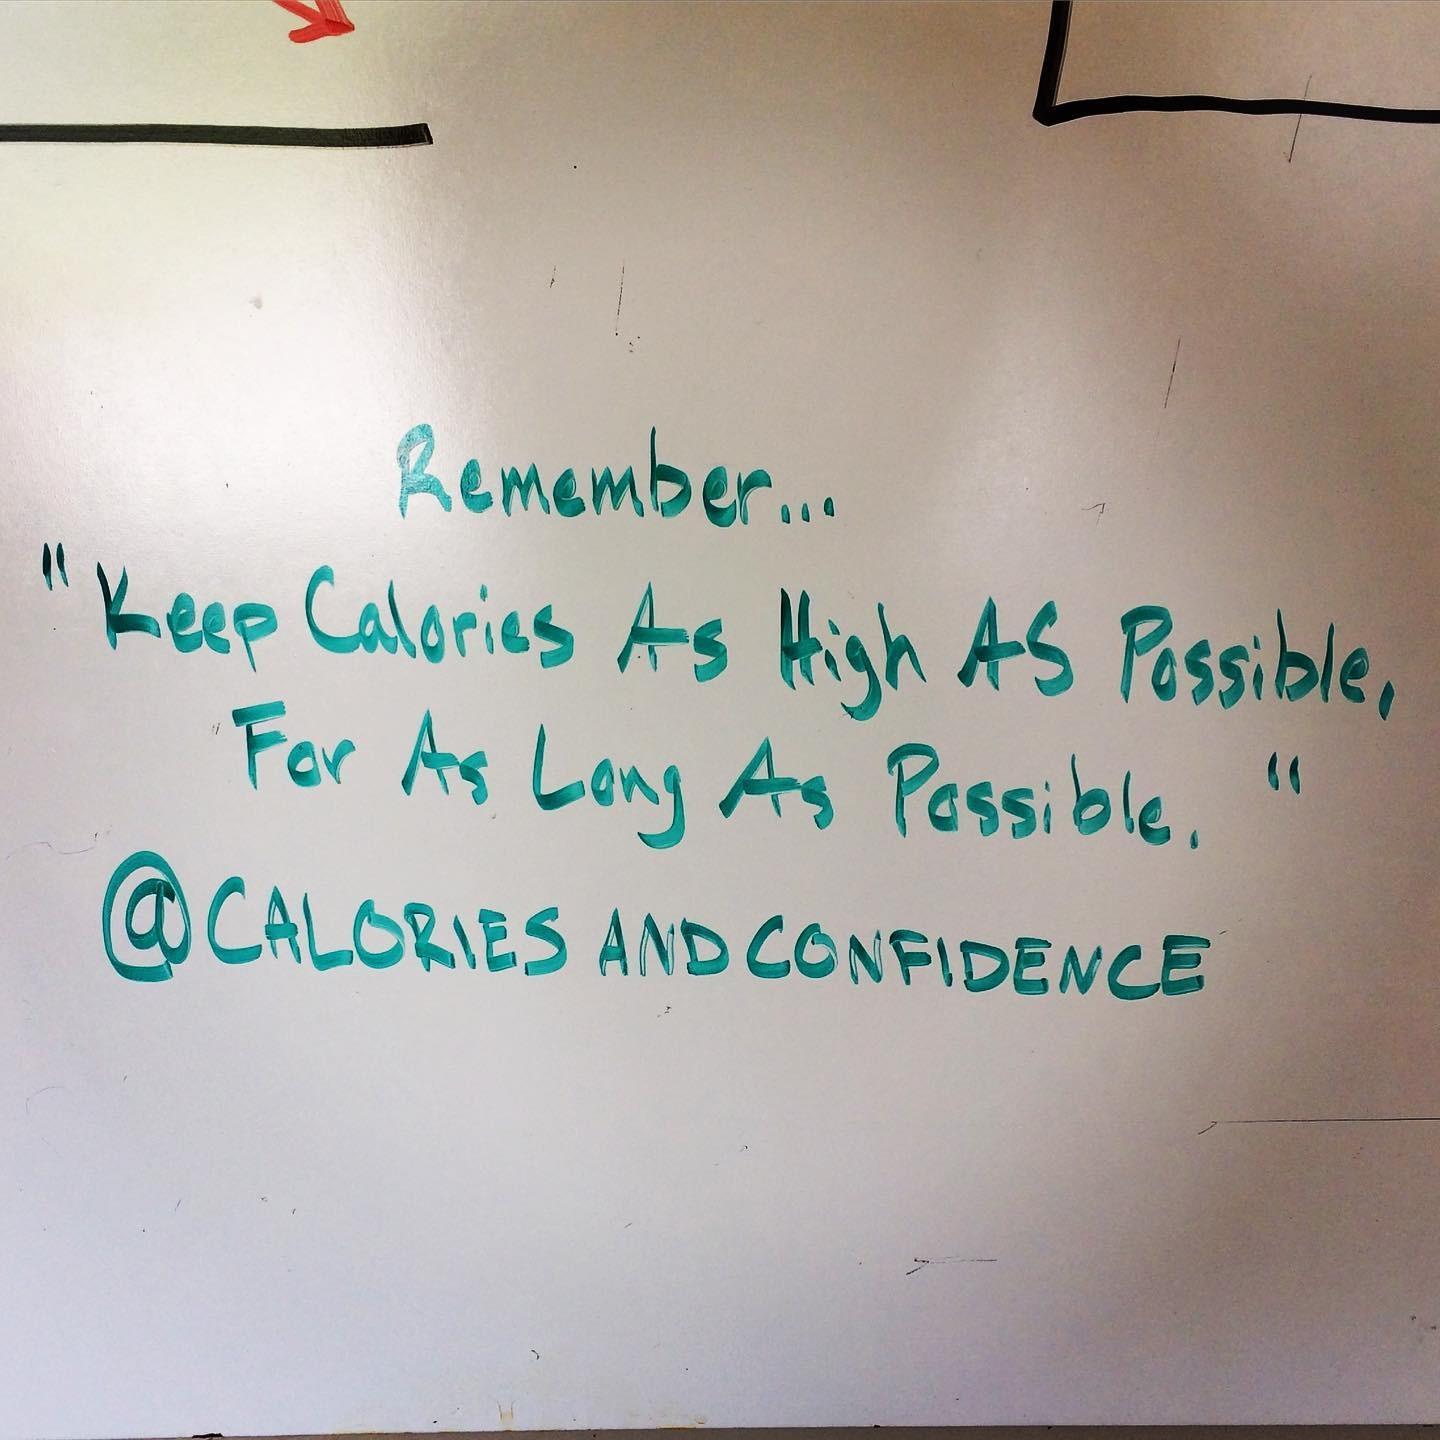 Remember...
"Keep Calories As High AS Possible,
For As Long As Possible. "
@CALORIESANDCONFIDENCE